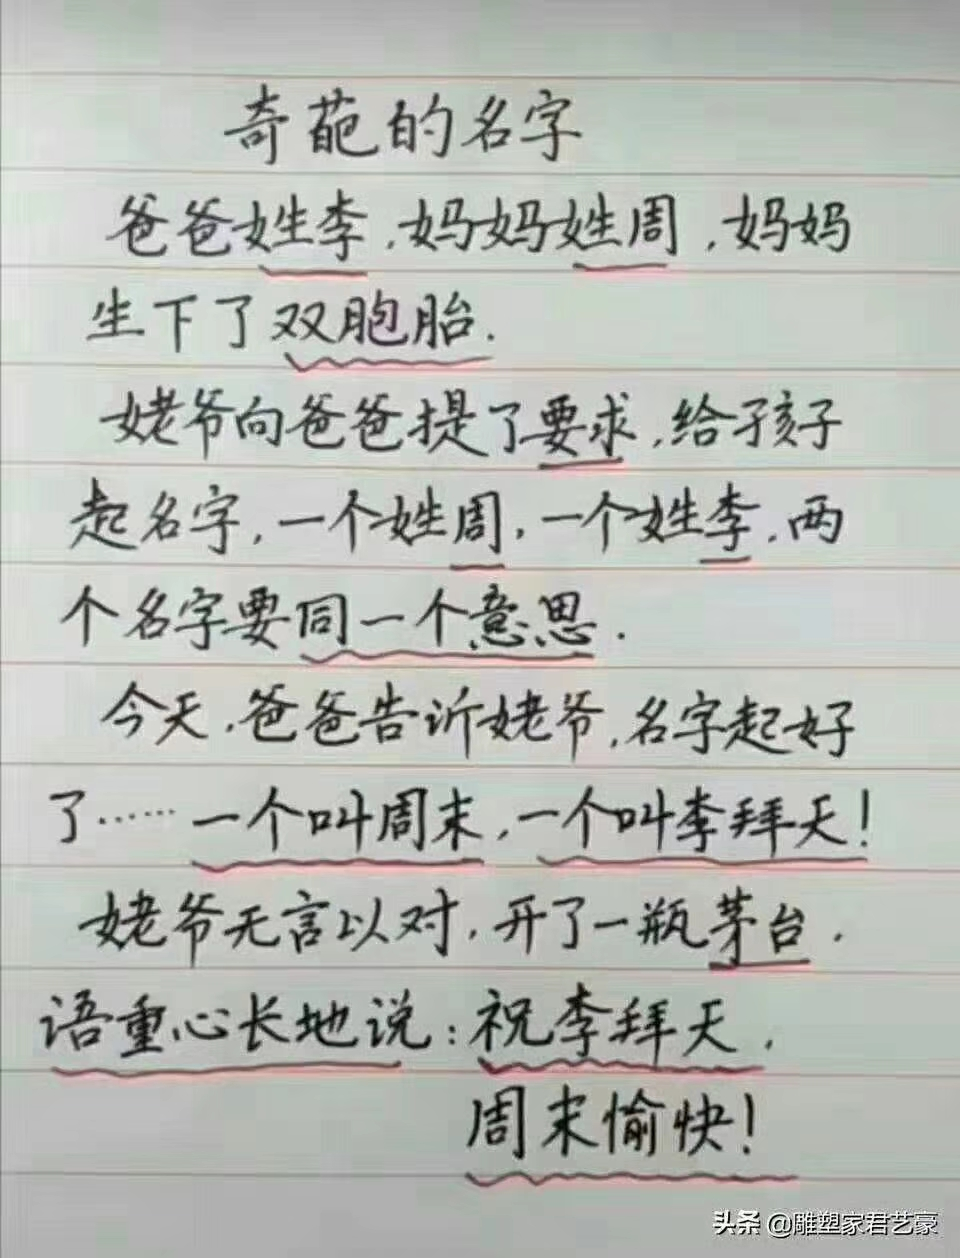 奇葩的名字
爸爸姓李,妈妈姓周,妈妈
生下了双胞胎.
姥爷向爸爸提了要求,给孩子
起名字,一个姓周,一个姓李,两
个名字要同一个意思.
今天,爸爸告诉姥爷,名字起好
了……一个叫周末,一个叫李拜天!
姥爷无言以对,开了一瓶茅台.
语重心长地说:祝李拜天,
周末愉快!
头条 @雕塑家君艺豪